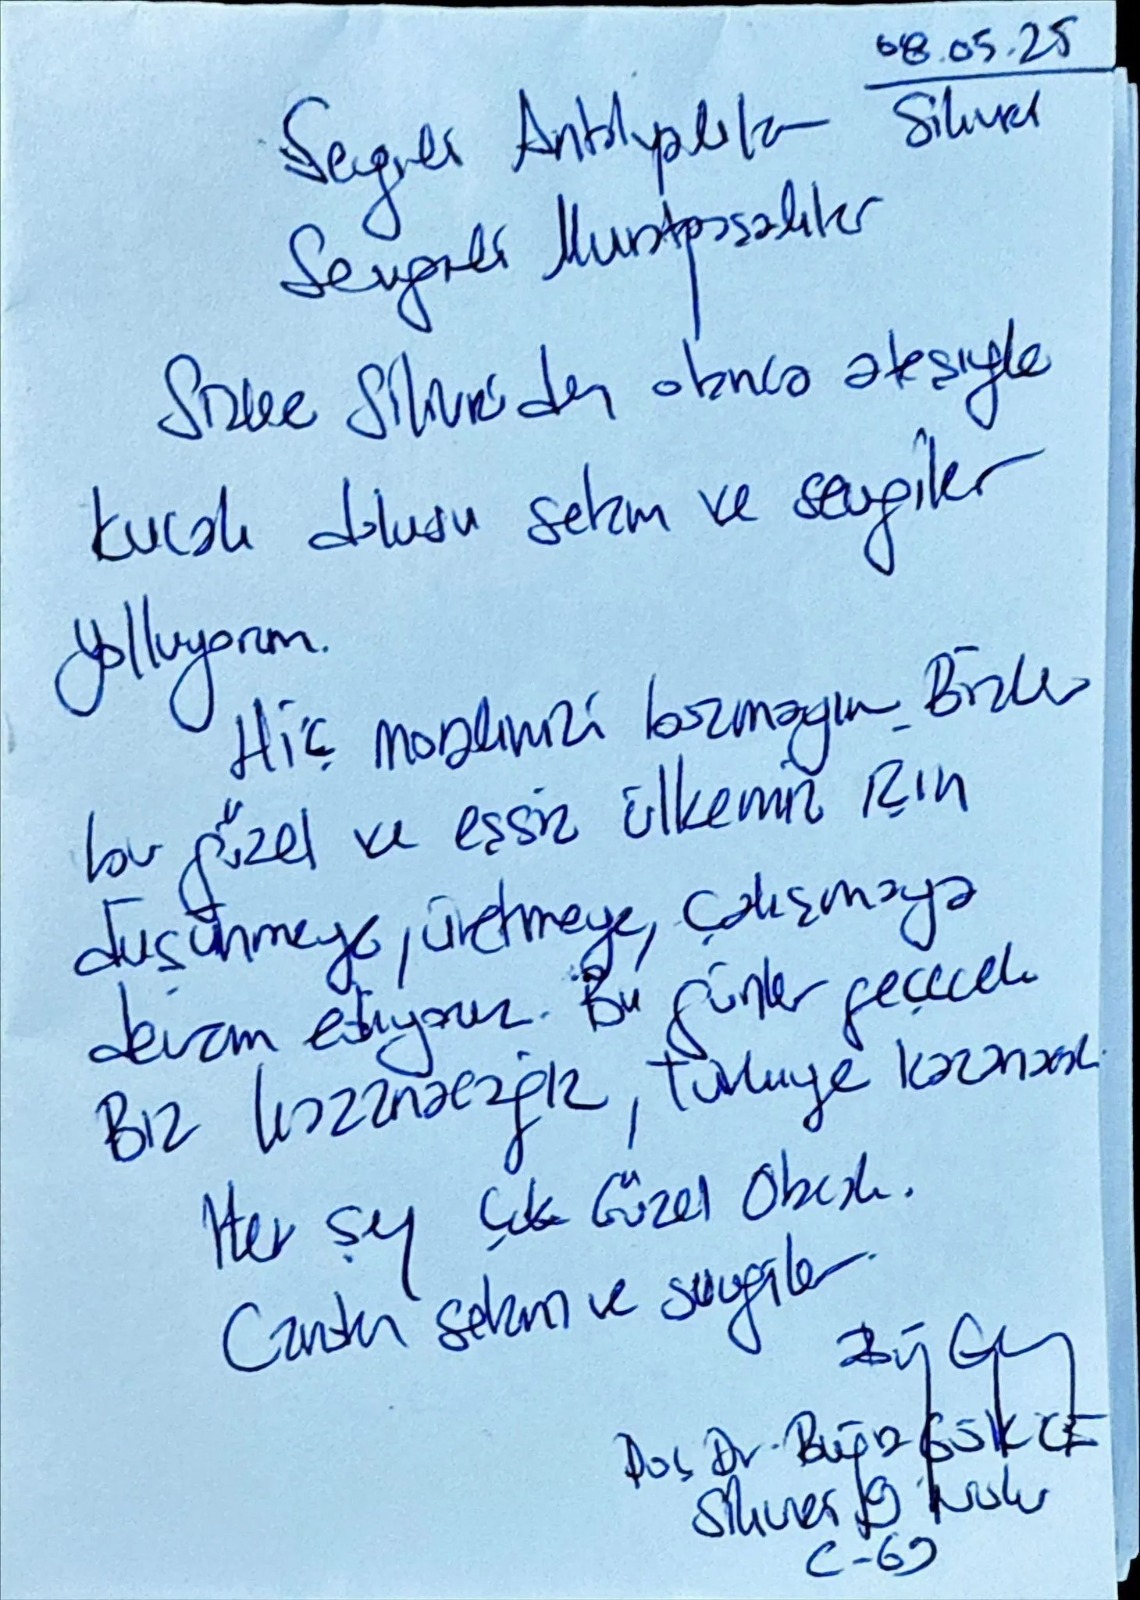 08.05.25
Silivri
Sevgili Antalyalılar
Sevgili Muratpaşalılar
Sizlere Silivri'den olanca ateşiyle
kucak dolusu selam ve sevgiler
yolluyorum.
Hiç moralinizi bozmayın. Bizler
bu güzel ve eşsiz ülkemiz için
düşünmeye, üretmeye, çalışmaya
devam ediyoruz. Bu günler geçecek
Biz kazanacağız, Türkiye kazanacak.
Her şey çok Güzel Olacak.
Candan selam ve sevgiler.
Doç Dr. Buğra GÖKCE
Silivri 9 Nolu
C-69